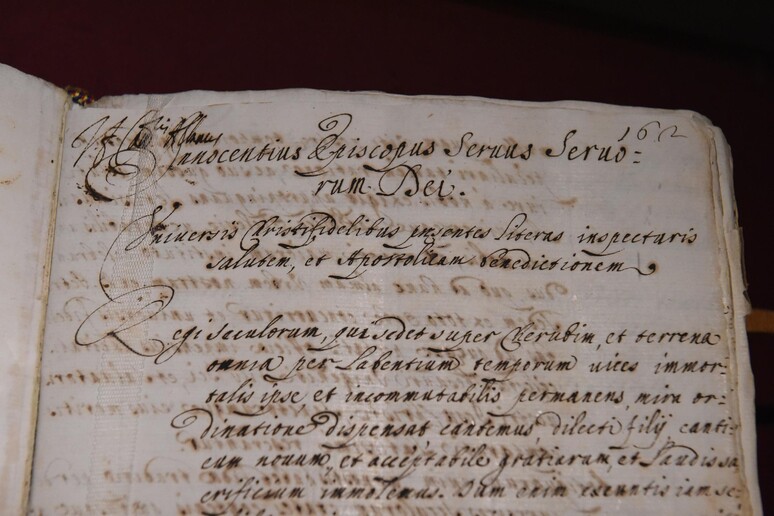 162
Innocentius Episcopus Seruus Seruo=
rum Dei.
Vniuersis Christifidelibus presentes literas inspecturis
salutem, et Apostolicam benedictionem
Regi seculorum, qui sedet super Cherubim, et terrena
omnia per labentium temporum uices immor=
talis ipse et incommutabilis permanens, mira or=
dinatione dispensat cantemus, dilecti filij, canti=
cum nouum, et acceptabile gratiarum, et laudis sa
crificium immolemus. Dum enim exeuntis iam se=